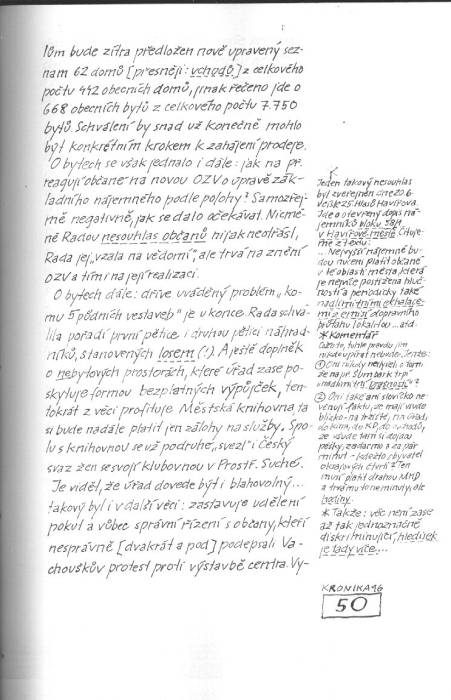 10m bude zítra předložen nově upravený sez-
nam 62 domů [přesněji: vchodů] z celkového
počtu 442 obecních domů, jinak řečeno jde o
668 obecních bytů z celkového počtu 7.750
bytů. Schválení by snad už konečně mohlo
být konkrétním krokem k zahájení prodeje.
O bytech se však jednalo i dále: jak na př.
reagují občané na novou OZV o úpravě zák-
ladního nájemného podle polohy? Samozřej-
mě negativně, jak se dalo očekávat. Nicmé-
ně Radou nesouhlas občanů nijak neotřásl,
Rada jej „vzala na vědomí", ale trvá na znění
OZV a tím i na její realizaci.
O bytech dále: dříve uváděný problém „ko-
mu 5 půdních vestaveb" je u konce. Rada schvá-
lila pořadí první pětice i druhou pětici náhrad-
níků, stanovených losem (!). A ještě doplněk
o nebytových prostorách, které úřad zase po-
skytuje formou bezplatných výpůjček, ten-
tokrát z věci profituje Městská knihovna, ta
si bude nadále platit jen zálohy na služby. Spo-
lu s knihovnou se už podruhé „svezl" i Český
svaz žen se svojí klubovnou v Prostř. Suché.
Je vidět, že úřad dovede být i blahovolný...
takový byl i v další věci: zastavuje udělení
pokut a vůbec správní řízení s občany, kteří
nesprávně [dvakrát a pod] podepsali Va-
chouškův protest proti výstavbě centra. Vy-
Jeden takový nesouhlas
byl zveřejněn dne 20.6.
ve is. 25 Hlasů Havířova.
Jde o otevřený dopis ná-
jemníků bloku
v Havířově-městě. Cituje-
me z textu:
... Nejvyšší nájemné bu-
dou nuceni platit občané
v té oblasti města, která
je nejvíce postižena hluč-
ností a periodicky také
nadlimitními exhalace-
mi z emisí dopravního
průtahu lokalitou... atd.
* Komentář
Čili to, tuhle pravdu jim
nikdo upírat nebude. Jenže:
① Oni nikdy neslyšeli o tom,
že na př. Šumbark trpí
„nadlimitní "?
② Oni také ani slovíčko ne-
věnují faktu, že mají všude
blízko - na tržiště, na úřad,
do kina, do KD, do obchodů,
že všude tam si dojdou
pěšky, zadarmo a za pár
minut - kdežto obyvatel
okrajových čtvrtí? Ten
musí platit drahou MHD
a trvá mu to ne minuty, ale
hodiny.
* Takže: věc není zase
až tak jednoznačně
diskriminující, hledisek
je tady více...
KRONIKA 96
50